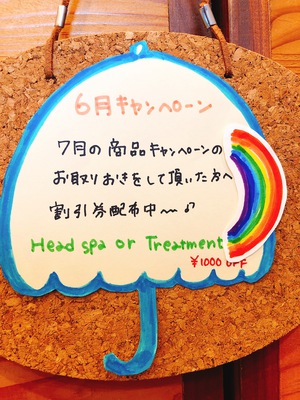 6月キャンペーン
7月の商品キャンペーンの
お取りおきをして頂いた方へ
割引券配布中〜♪
Head spa or Treatment
¥1000 OFF